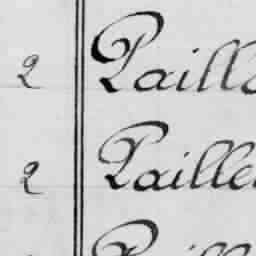 2 Paille
2 Paille